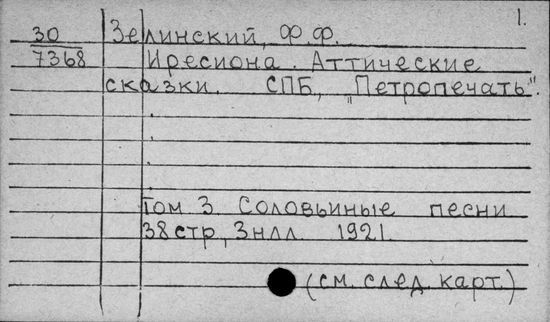 1.
30 Зелинский, Ф.Ф.
7368 Иресиона. Аттические
сказки. СПБ, "Петропечать".
Том 3 Соловьиные песни
38 стр, 3 нлл 1921.
(см. след. карт.)